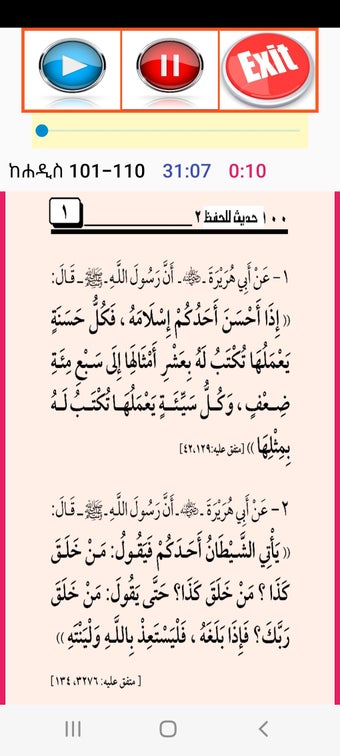 Exit
ከሐዲስ 101-110 31:07 0:10
١٠٠ حديث للحفظ ٢ ١
١- عَنْ أَبِي هُرَيْرَةَ ـ رضي الله عنه ـ أَنَّ رَسُولَ اللَّهِ ـ ﷺ ـ قَالَ:
(( إِذَا أَحْسَنَ أَحَدُكُمْ إِسْلَامَهُ ، فَكُلُّ حَسَنَةٍ
يَعْمَلُهَا تُكْتَبُ لَهُ بِعَشْرِ أَمْثَالِهَا إِلَى سَبْعِ مِئَةِ
ضِعْفٍ ، وَكُلُّ سَيِّئَةٍ يَعْمَلُهَا تُكْتَبُ لَهُ
بِمِثْلِهَا )) [متفق عليه:٤٢،١٢٩]
٢- عَنْ أَبِي هُرَيْرَةَ ـ رضي الله عنه ـ أَنَّ رَسُولَ اللَّهِ ـ ﷺ ـ قَالَ:
(( يَأْتِي الشَّيْطَانُ أَحَدَكُمْ فَيَقُولُ: مَنْ خَلَقَ
كَذَا ؟ مَنْ خَلَقَ كَذَا؟ حَتَّى يَقُولَ: مَنْ خَلَقَ
رَبَّكَ؟ فَإِذَا بَلَغَهُ ، فَلْيَسْتَعِذْ بِاللَّهِ وَلْيَنْتَهِ ))
[ متفق عليه: ٣٢٧٦، ١٣٤ ]